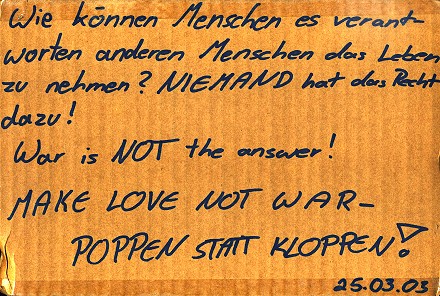 Wie können Menschen es verant-
worten anderen Menschen das Leben
zu nehmen? NIEMAND hat das Recht
dazu!
War is NOT the answer!
MAKE LOVE NOT WAR-
POPPEN STATT KLOPPEN!
25.03.03